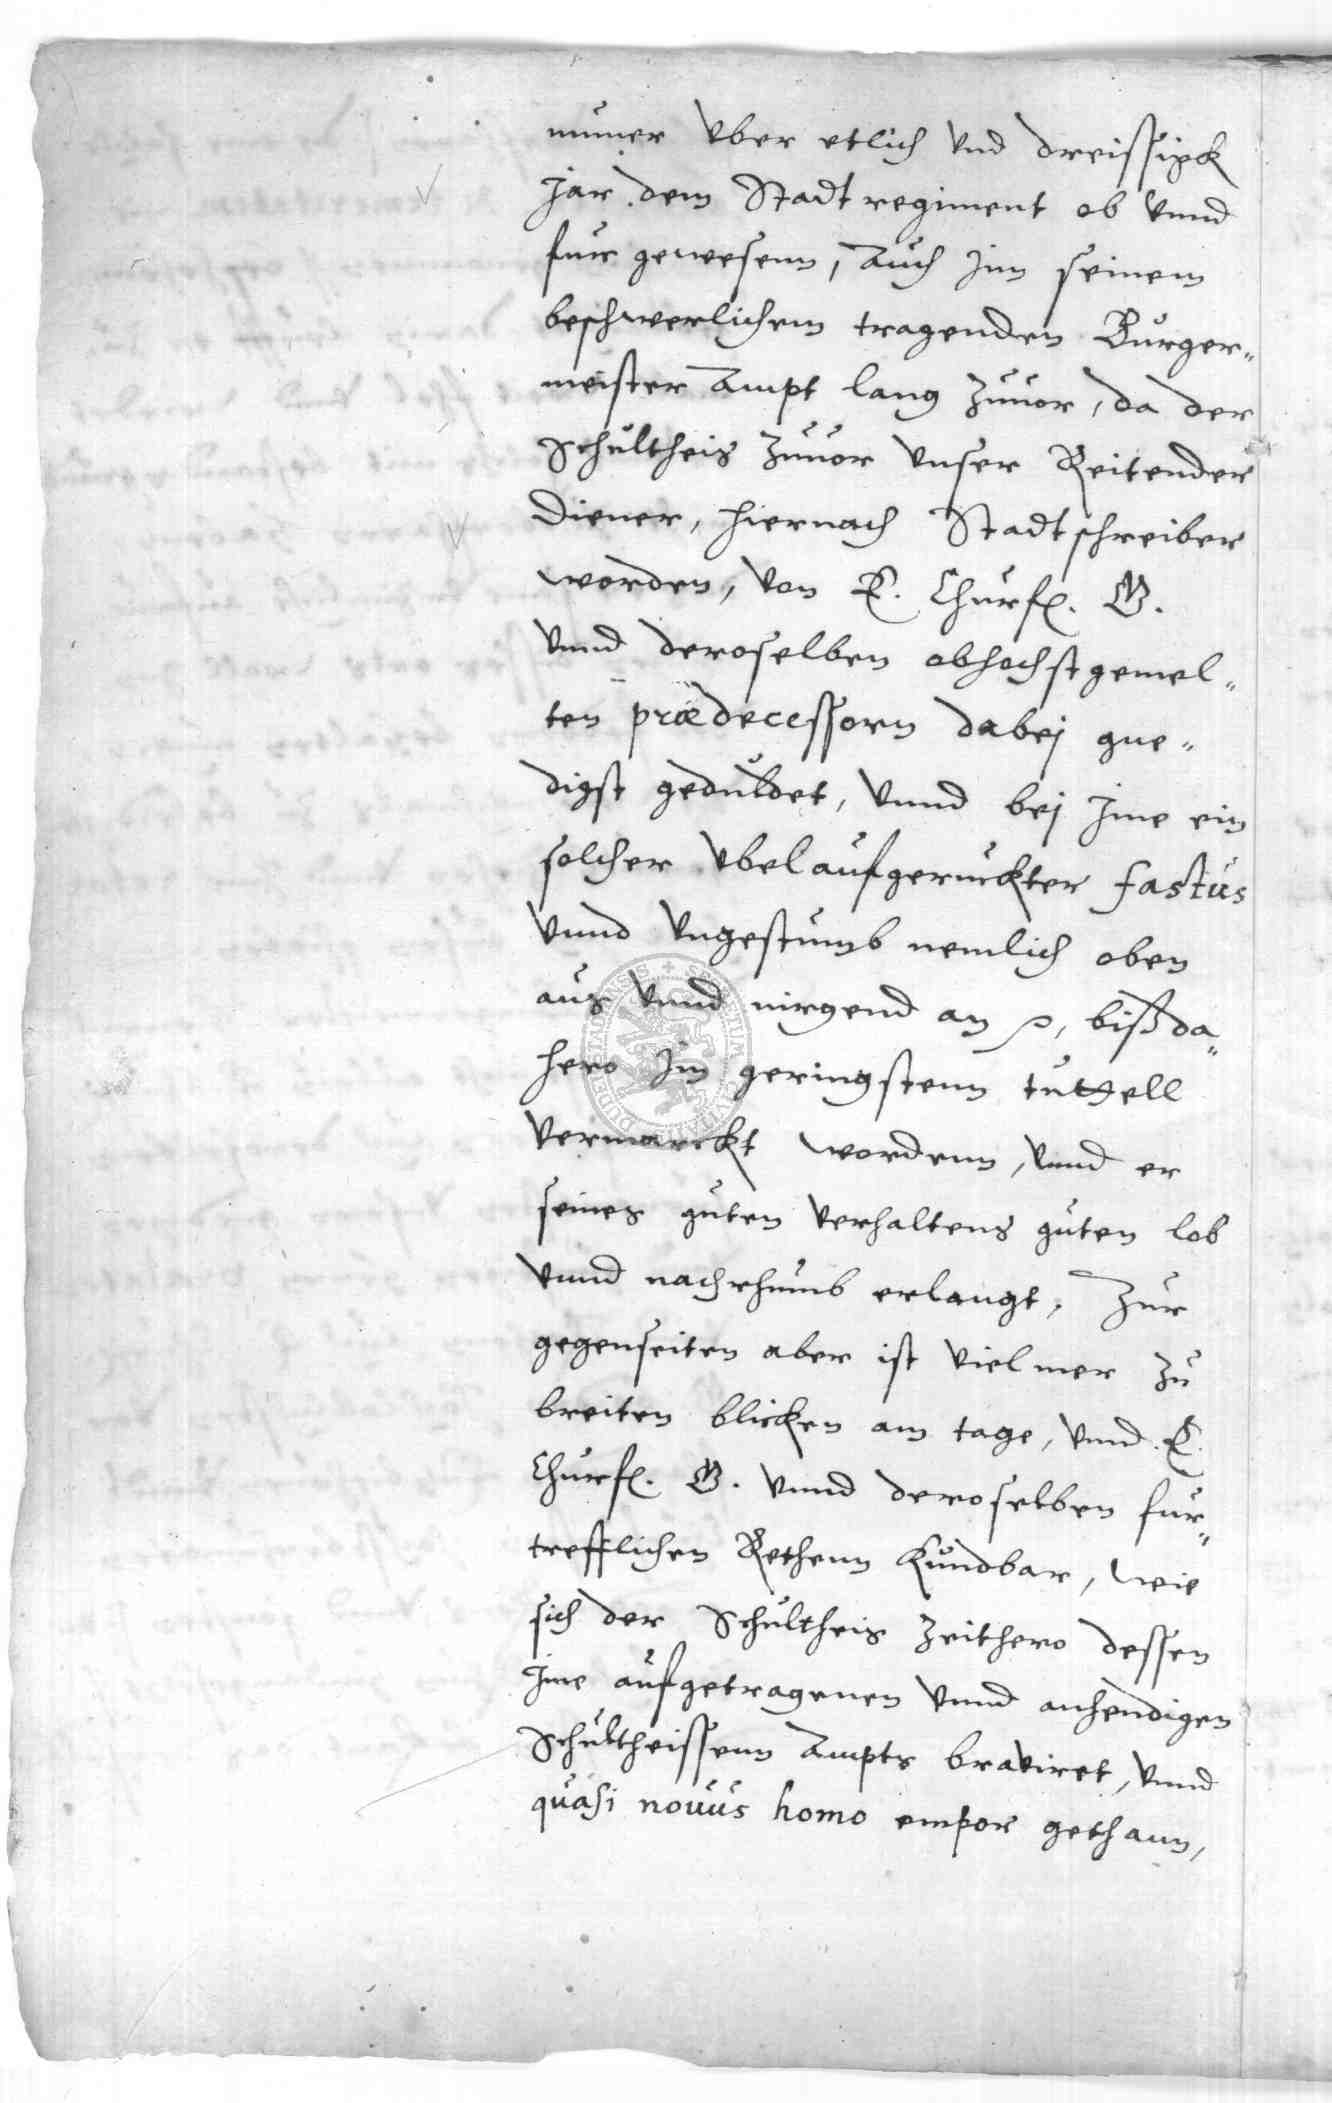 nunner vber etlich vnd dreissigk
Jar dem Stadt regiment ob vnnd
fur gewesenn, Auch Inn seinem
beschwerlichem tragenden Burger„
meister Ampt lang zuuor, da der
Schultheis zuuor vnser Reitender
Diener, hiernach Stadtschreiber
worden, von E. Churf. G.
vnnd deroselben obhochstgemel„
ten prædecessorn dabej gne„
digst geduldet, vnnd bej Jme ein
solcher vbelaufgeruckter fastus
vnnd vngestumb nemlich oben
aus vnnd nirgend an , bißda„
hero Im geringstenn tuttell
vermarckt wordenn, vnnd er
seines guten verhaltens guten lob
vnnd nachrhumb erlangt, Zur
gegenseiten aber ist viel mer zu
breiten blicken am tage, vnnd E.
Churf. G. vnnd deroselben fur„
trefflichen Rethenn Kundbar, wie
sich der Schultheis zeithero dessen
Jme aufgetragenen vnnd anhendigen
Schultheissenn Ampts braviret, vnnd
quasi nouus homo empor gethann,
SECRETUM CIVITATIS DUDERSTADENSIS